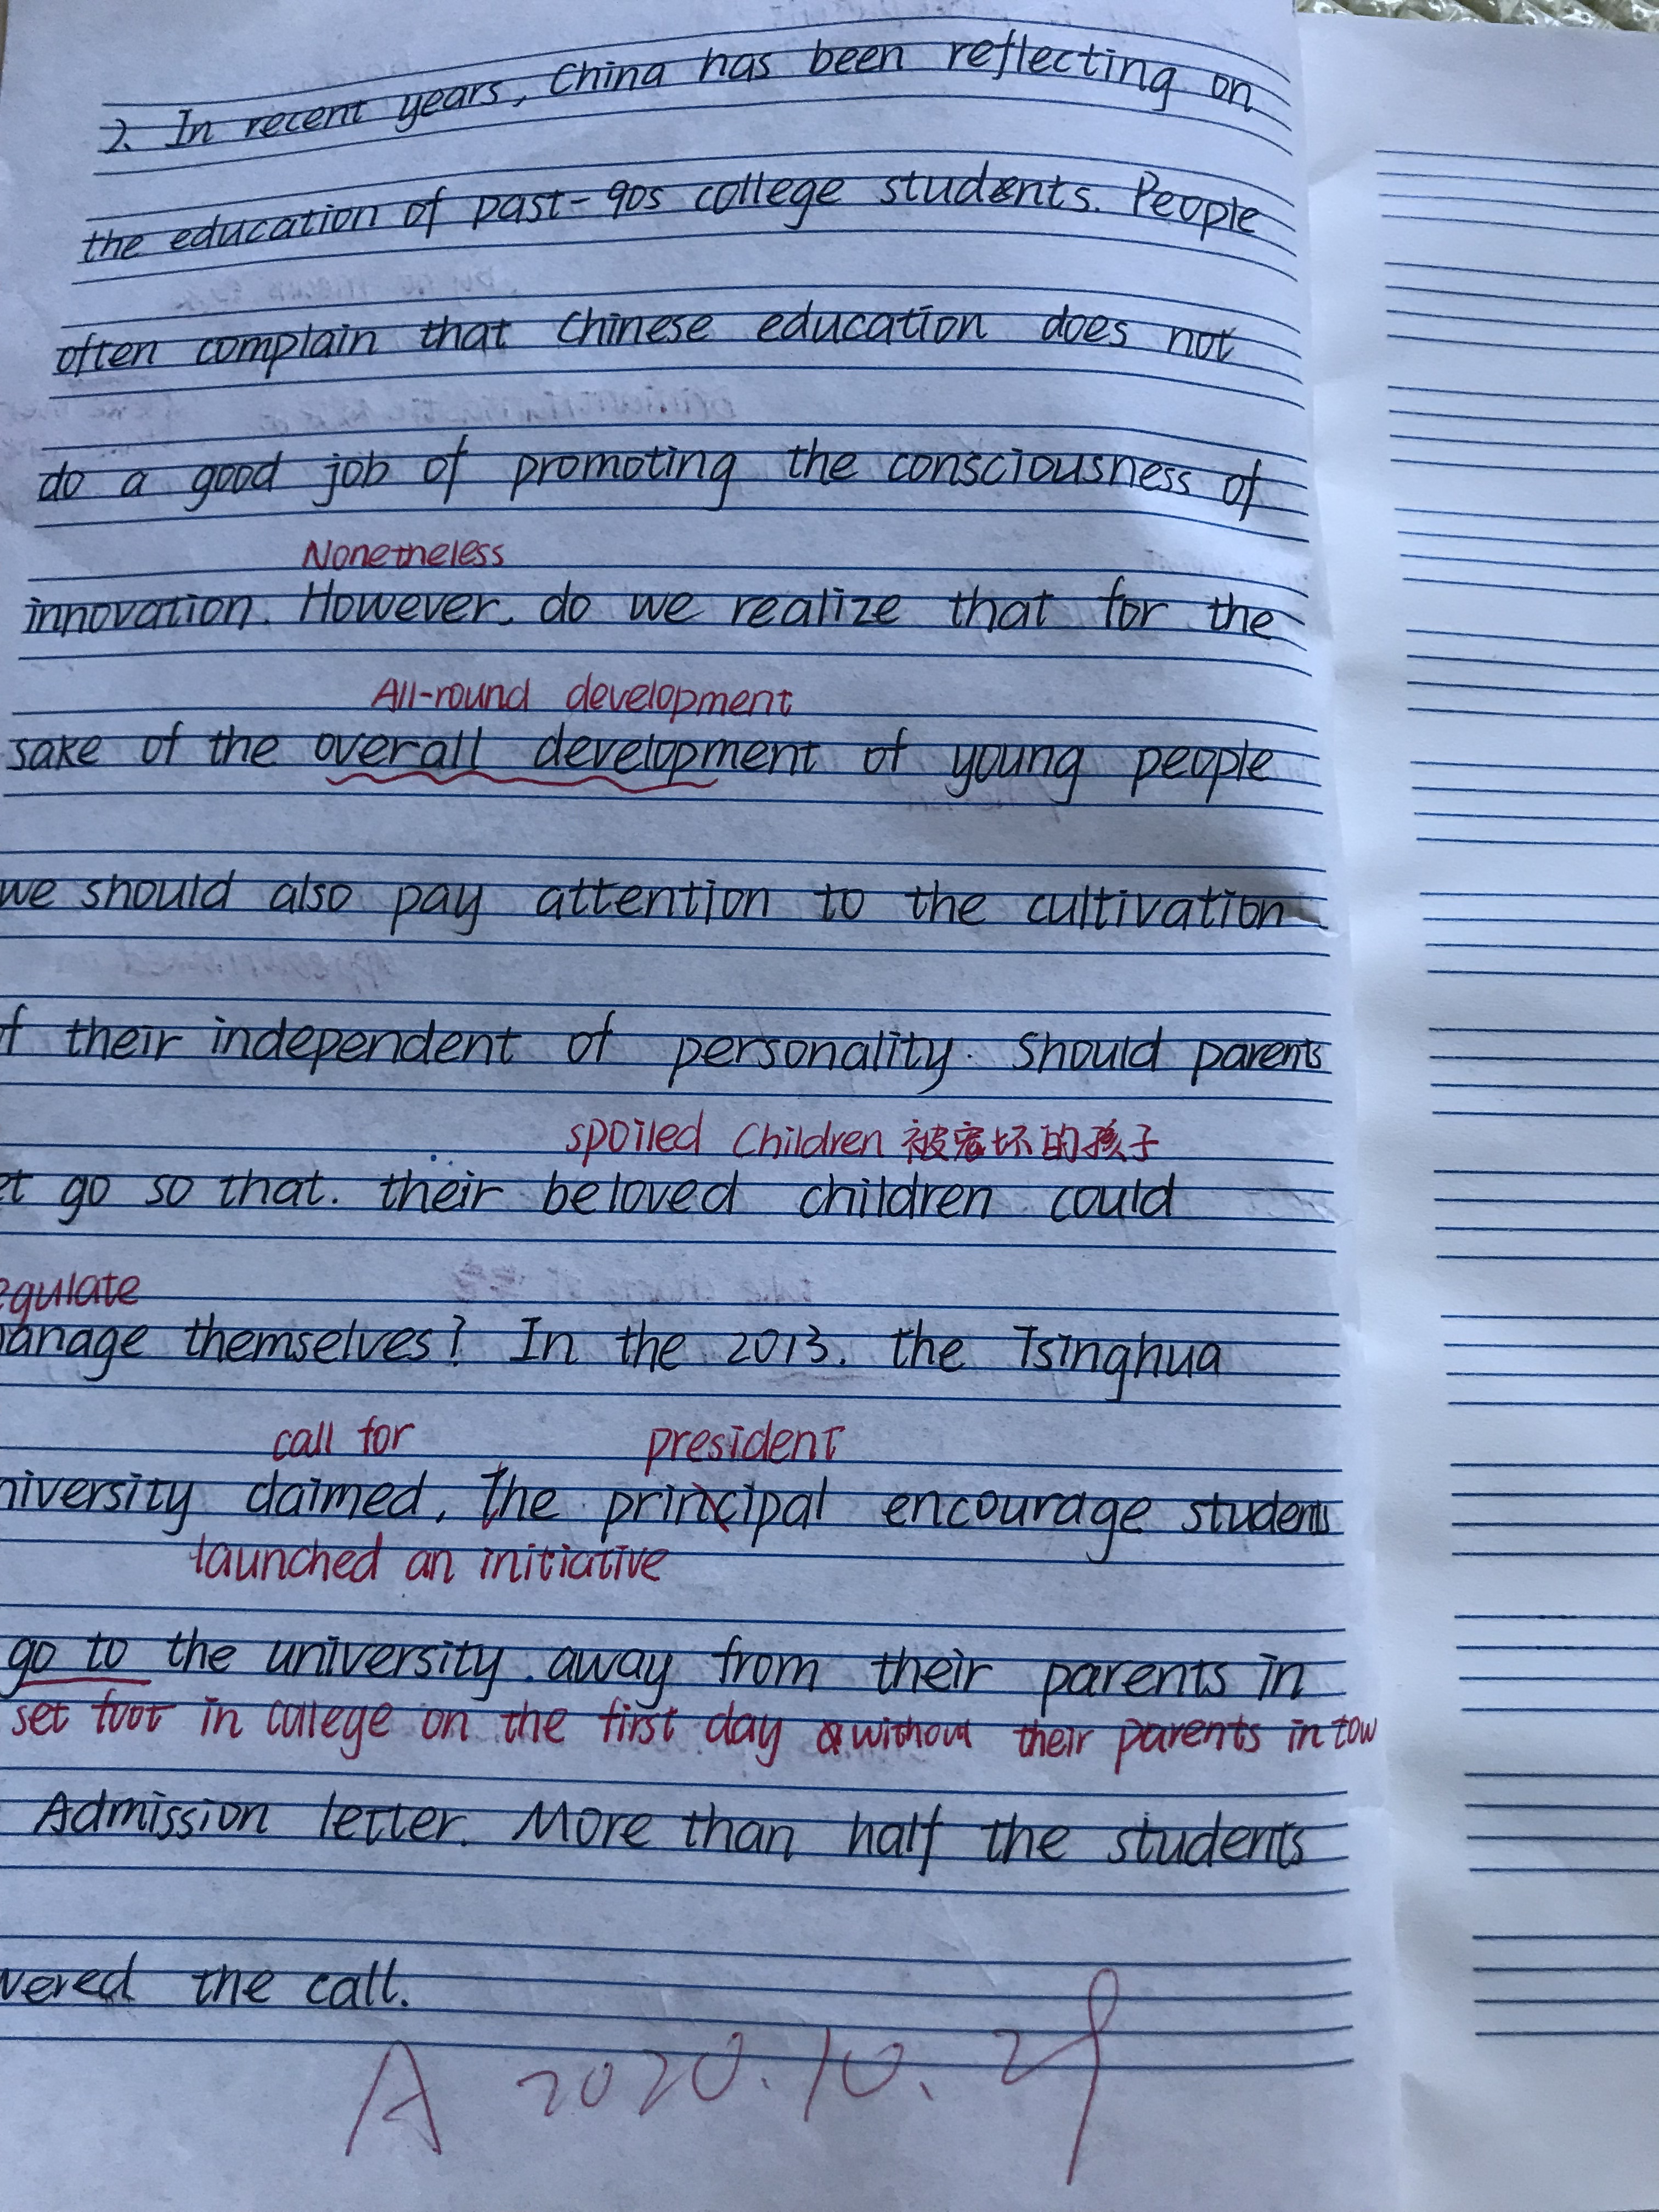 2. In recent years, China has been reflecting on
the education of past-90s college students. People
often complain that Chinese education does not
do a good job of promoting the consciousness of
Nonetheless
innovation. However. do we realize that for the
All-round development
sake of the overall development of young people
we should also pay attention to the cultivation
f their independent of personality. Should parents
spoiled Children 被宠坏的孩子
et go so that. their beloved children could
egulate
anage themselves? In the 2013. the Tsinghua
call for president
niversity claimed, the principal encourage students
launched an initiative
go to the university. away from their parents in
set foot in college on the first day without their parents in tow
Admission letter. More than half the students
vered the call.
A 2020.10.29